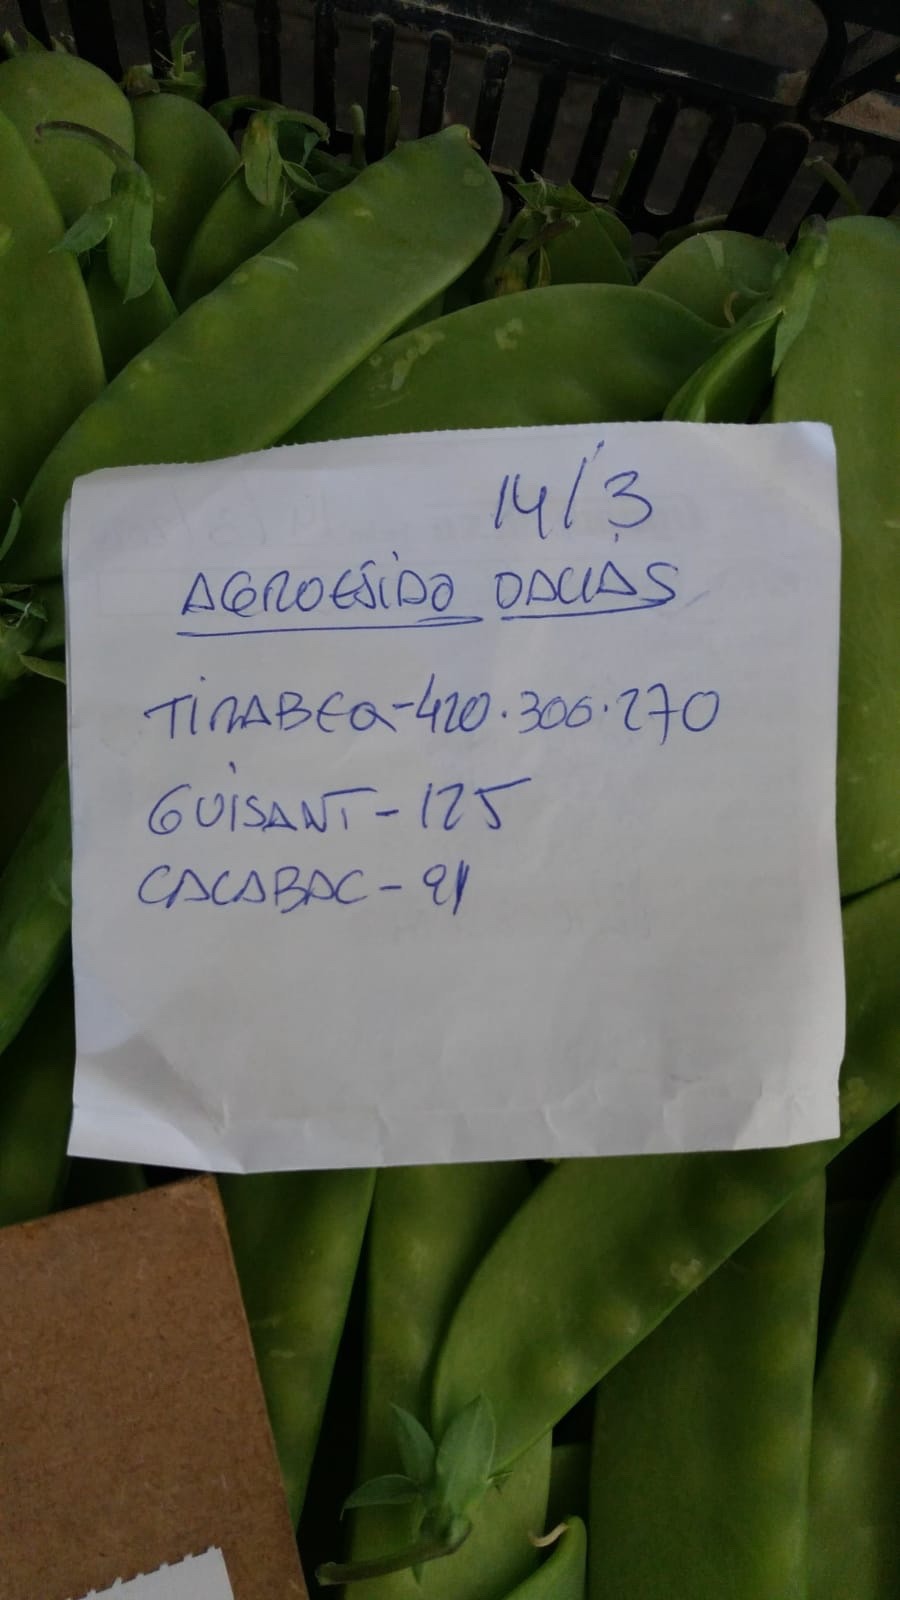 14/3
AGROEJIDO DALIAS
TIRABEQ-420.306.270
GUISANT-125
CACABAC-91